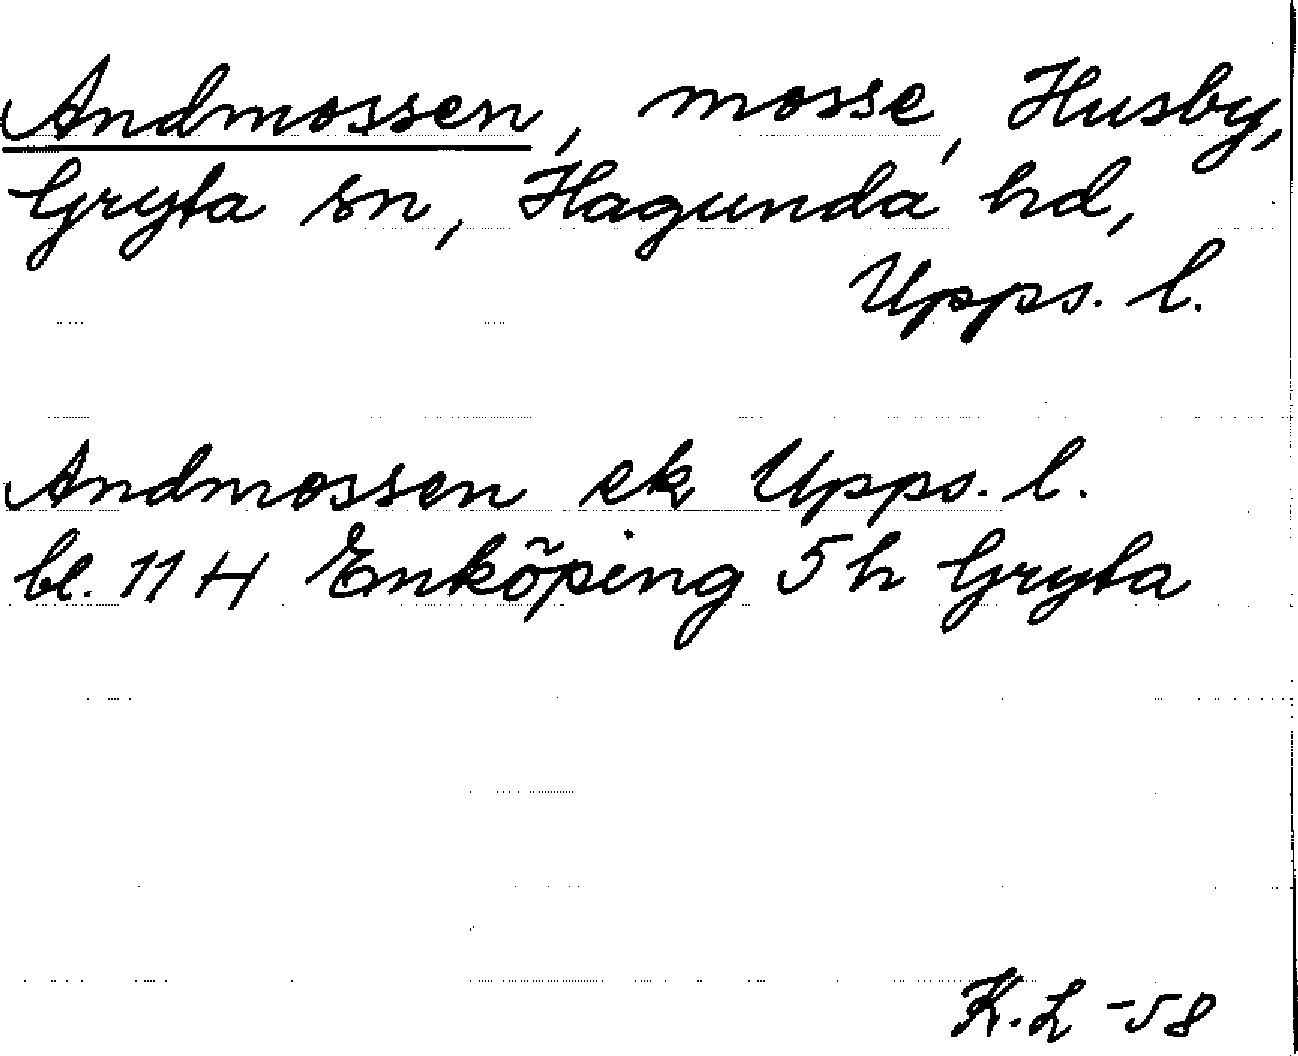 Andmossen, mosse, Husby,
Gryta sn, Hagunda hd,
Upps. l.
Andmossen ek Upps. l.
bl. 11 H Enköping 5 h Gryta
K. L -58